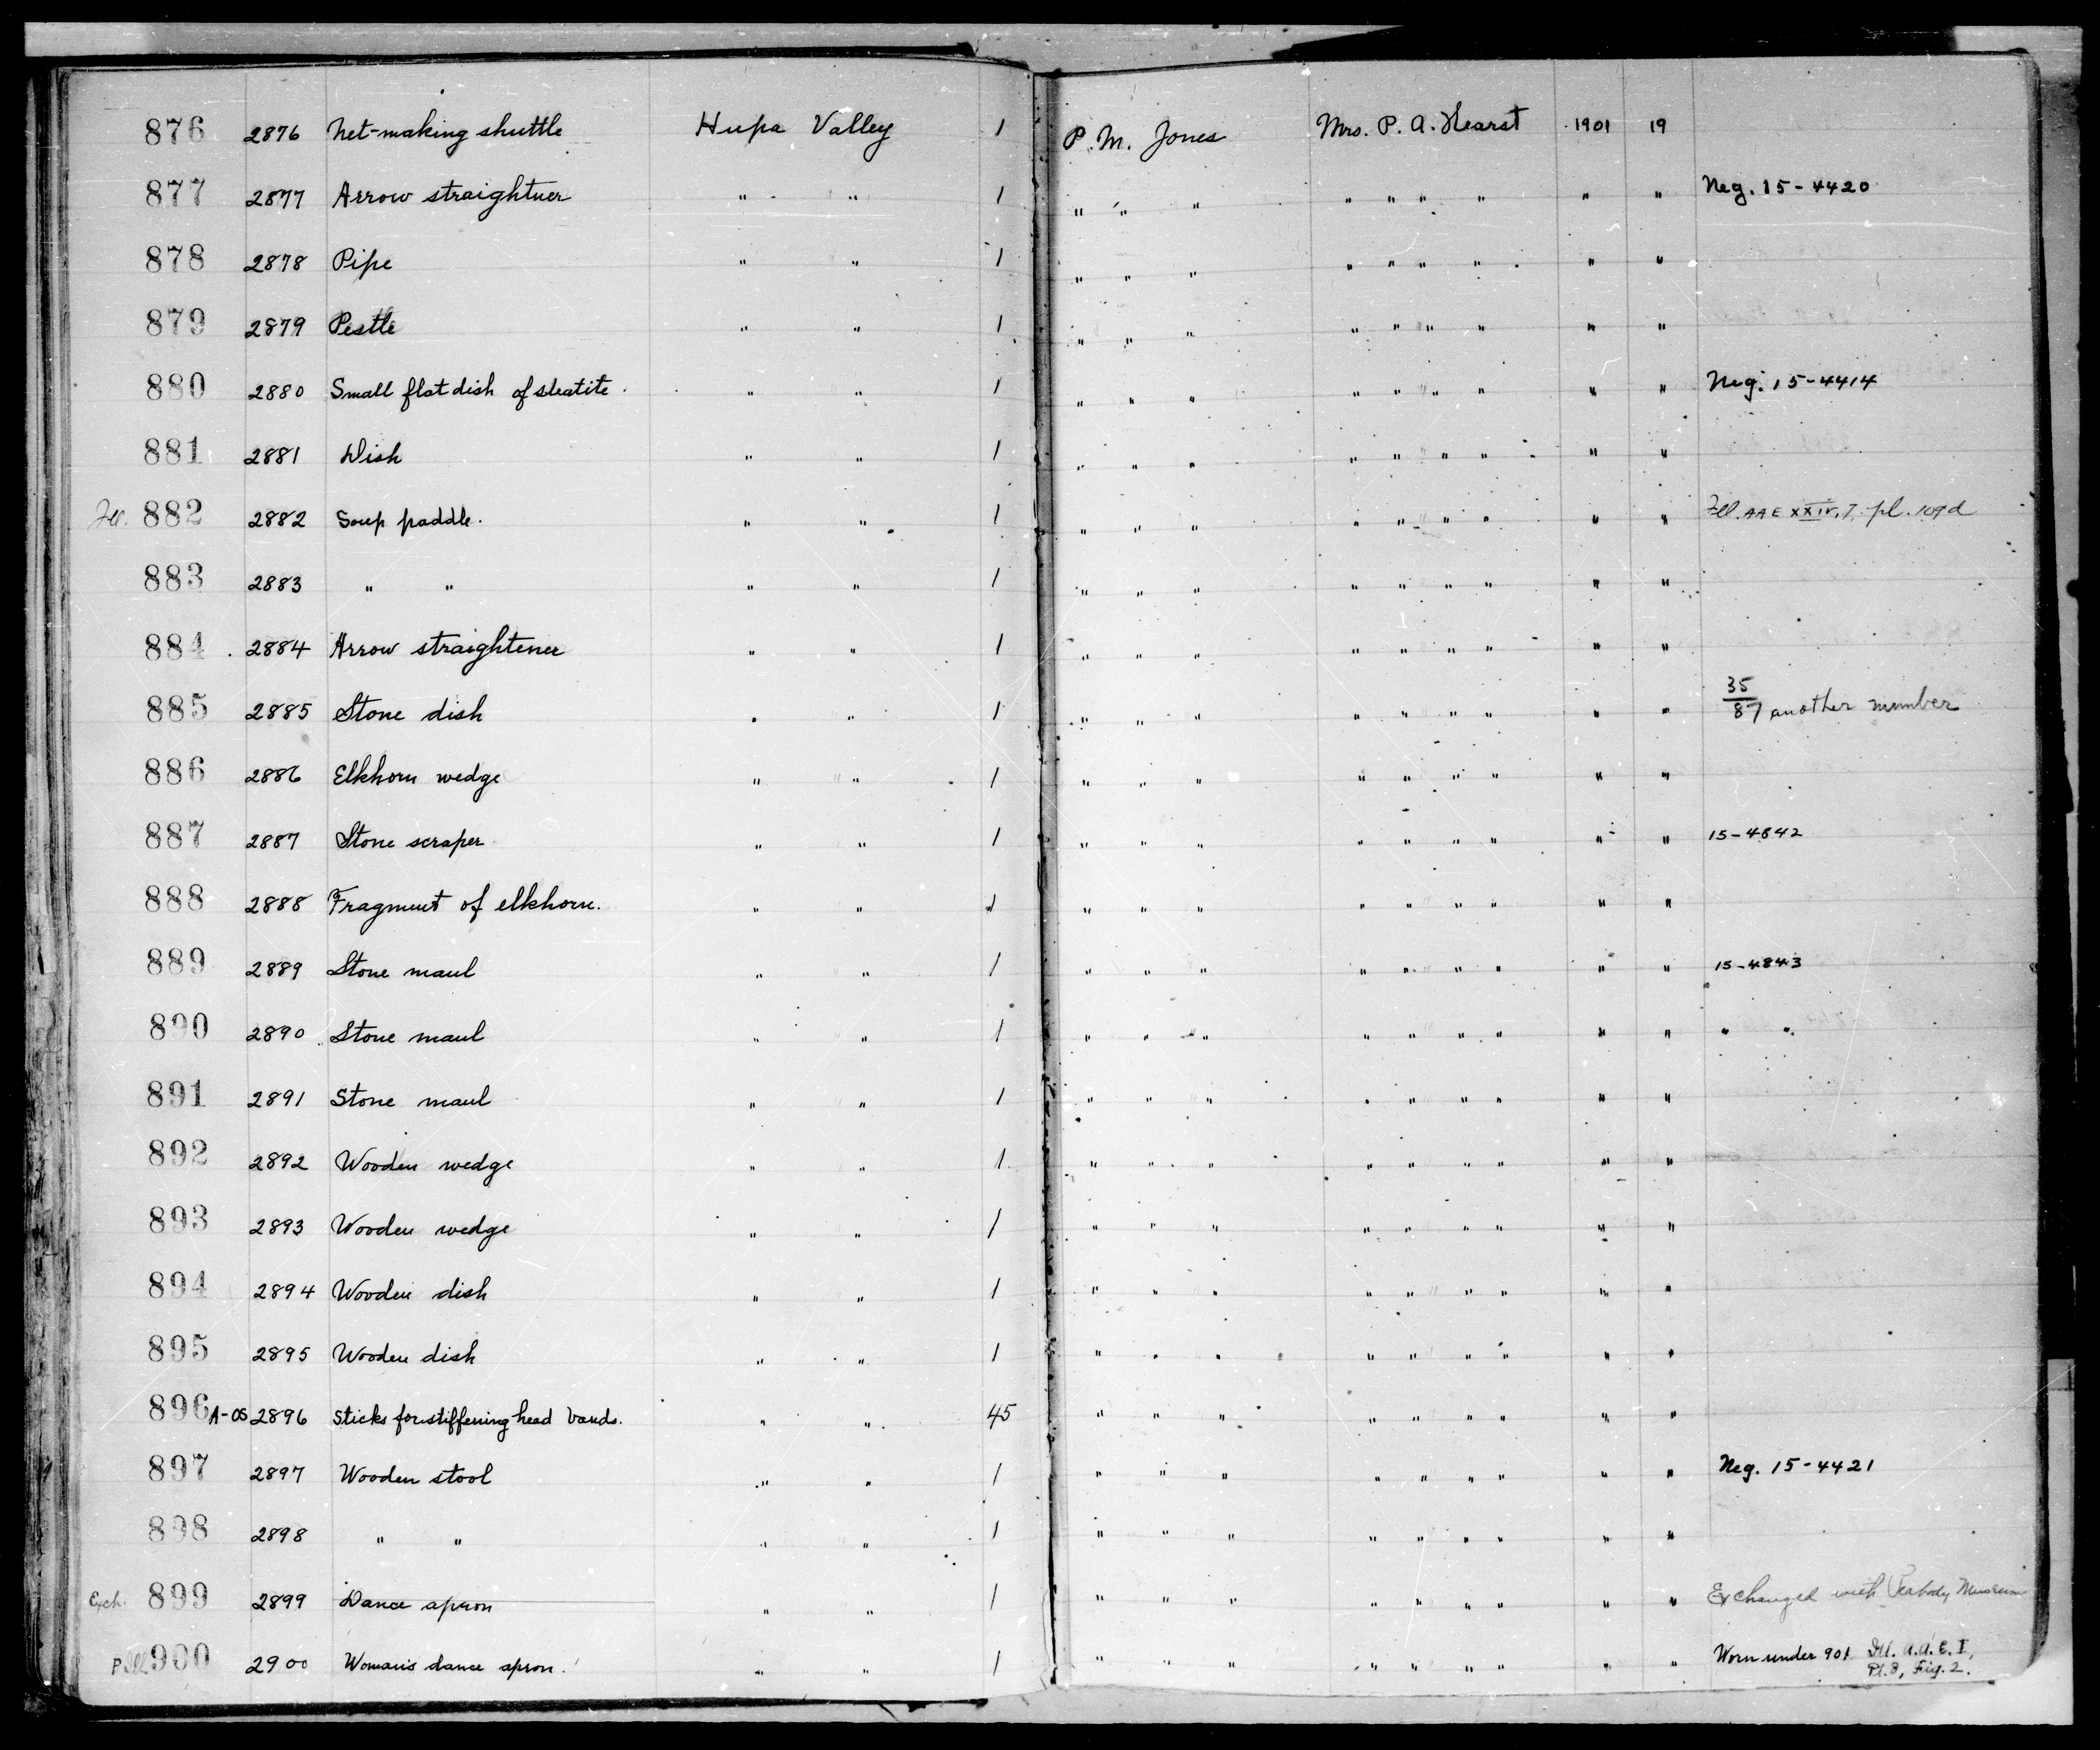 876 2876 Net-making shuttle Hupa Valley 1 P. M. Jones Mrs. P. A. Hearst 1901 19
877 2877 Arrow straightner " " 1 " " " " " " " " " Neg. 15-4420
878 2878 Pipe " " 1 " " " " " " " " "
879 2879 Pestle " " 1 " " " " " " " " "
880 2880 Small flat dish of steatite " " 1 " " " " " " " " " Neg. 15-4414
881 2881 Dish " " 1 " " " " " " " " "
Ill. 882 2882 Soup paddle. " " 1 " " " " " " " " " Ill. AAE XXIV, 7, pl. 109d
883 2883 " " " " 1 " " " " " " " " "
884 2884 Arrow straightener " " 1 " " " " " " " " "
885 2885 Stone dish " " 1 " " " " " " " " " 35/87 another number
886 2886 Elkhorn wedge " " 1 " " " " " " " " "
887 2887 Stone scraper " " 1 " " " " " " " " " 15-4842
888 2888 Fragment of elkhorn. " " 1 " " " " " " " " "
889 2889 Stone maul " " 1 " " " " " " " " " 15-4843
890 2890 Stone maul " " 1 " " " " " " " " " " "
891 2891 Stone maul " " 1 " " " " " " " " "
892 2892 Wooden wedge " " 1 " " " " " " " " "
893 2893 Wooden wedge " " 1 " " " " " " " " "
894 2894 Wooden dish " " 1 " " " " " " " " "
895 2895 Wooden dish " " 1 " " " " " " " " "
896 A-OS 2896 Sticks for stiffening head bands. " " 45 " " " " " " " " "
897 2897 Wooden stool " " 1 " " " " " " " " " Neg. 15-4421
898 2898 " " " " 1 " " " " " " " " "
Exch. 899 2899 Dance apron " " 1 " " " " " " " " " Exchanged with Peabody Museum
Ill. 900 2900 Woman's dance apron. " " 1 " " " " " " " " " Worn under 901 Ill. A.A.E. I,
Pl. 8, Fig. 2.